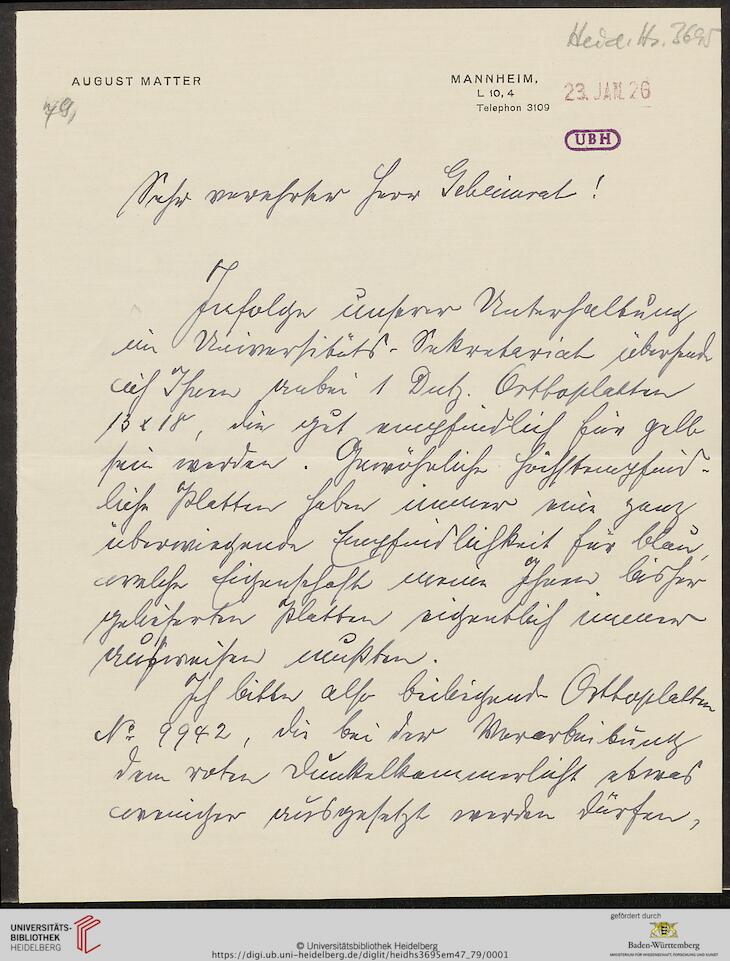 Heid. Hs. 3695
AUGUST MATTER
MANNHEIM,
L 10, 4
Telephon 3109
23. JAN. 26
UBH
Sehr verehrter Herr Geheimrat!
Infolge unserer Unterhaltung
im Universitäts-Sekretariat übersende
ich Ihnen anbei 1 Dutz. Orthoplatten
13 x 18, die gut empfindlich für gelb
sein werden. Gewöhnliche höchstempfind-
liche Platten haben immer eine ganz
überwiegende Empfindlichkeit für blau,
welche Eigenschaft meine Ihnen bisher
gelieferten Platten eigentlich immer
aufweisen mußten.
Ich bitte also beiliegende Orthoplatten
No 9942, die bei der Verarbeitung
dem roten Dunkelkammerlicht etwas
weniger ausgesetzt werden dürfen,
UNIVERSITÄTS-
BIBLIOTHEK
HEIDELBERG
© Universitätsbibliothek Heidelberg
https://digi.ub.uni-heidelberg.de/diglit/heidhs3695em47_79/0001
gefördert durch
Baden-Württemberg
MINISTERIUM FÜR WISSENSCHAFT, FORSCHUNG UND KUNST